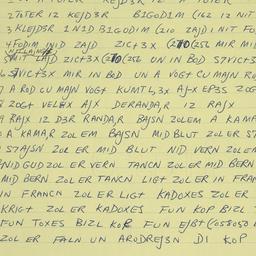 2 TOTER IZ KEJD3R B1GODIM (162 12 NIT
3 KLEJD3R 1 N1D B1GODIM (210 ZAJD) INIT FO
4 FODIM INID ZAJD ZICT3X (210 (25L MIR MID
ZICT3X (210 (25L UN IN BOD S7VICT3
S7VICT3X MIR IN BOD UN A VOGT CU MAJN RO
A ROD CU MAJN VOGT KUMTL,3X AJ-X EP3S ZOG
ZOGT VELHX AJX DERANDA,R 12 RAJX
RAJX 12 D3R RANDA,R BAJSN ZOLEM A KAMA
A KAMA,R ZOLEM BAJSN MID BLUT ZOLER S7
S7AJSN ZOL ER MID BLUT NID VERN ZOLEM
NID GUD ZOL ER VERN TANCN ZOL ER MID BERN
MID BERN ZOL ER TANCN LIGT ZOL ER IN FRAN
IN FRANCN ZOL ER LIGT KADOXES ZOL ER
KRIGT ZOL ER KADOXES FUN KOP BIZL
FUN TOXES BIZL KOP FUN EJBT (058050
ZOL ER FALN UN ARODREJSN DI KOP